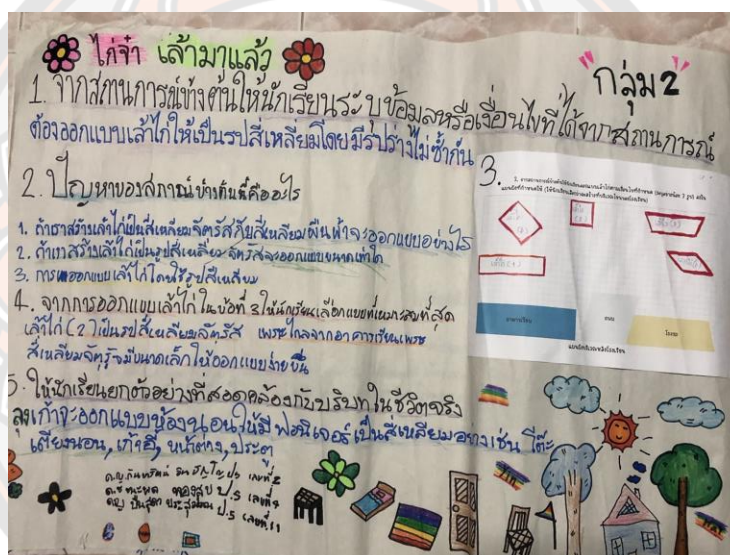 ไก่จ๋า เล้ามาแล้ว
กลุ่ม 2
1. จากสถานการณ์ข้างต้นให้นักเรียนระบุข้อมูลหรือเงื่อนไขที่ได้จากสถานการณ์
ต้องออกแบบเล้าไก่ให้เป็นรูปสี่เหลี่ยมโดยมีรูปร่างไม่ซ้ำกัน
2. ปัญหาของสถานการณ์ข้างต้นนี้คืออะไร
1. ถ้าเราสร้างเล้าไก่เป็นสี่เหลี่ยมจัตุรัสกับสี่เหลี่ยมผืนผ้าจะออกแบบอย่างไร
2. ถ้าเราสร้างเล้าไก่เป็นรูปสี่เหลี่ยมจัตุรัสจะออกแบบขนาดเท่าใด
3. การออกแบบเล้าไก่โดยใช้รูปสี่เหลี่ยม
3.
อาคารเรียน
ถนน
โรงรถ
4. จากการออกแบบเล้าไก่ในข้อที่ 3 ให้นักเรียนเลือกแบบที่เหมาะสมที่สุด
เล้าไก่ (2) เป็นรูปสี่เหลี่ยมจัตุรัส เพราะไกลจากอาคารเรียนเพราะ
สี่เหลี่ยมจัตุรัสมีขนาดเล็กให้ออกแบบง่ายขึ้น
5. ให้นักเรียนยกตัวอย่างที่สอดคล้องกับบริบทในชีวิตจริง
ลุงเก้าจะออกแบบห้องนอนให้มีฟอนิเจอร์เป็นสี่เหลี่ยมอย่างเช่น โต๊ะ
เตียงนอน, เก้าอี้, หน้าต่าง, ประตู
ป.5 เลขที่ 2
ป.5 เลขที่ 9
ป.5 เลขที่ 11